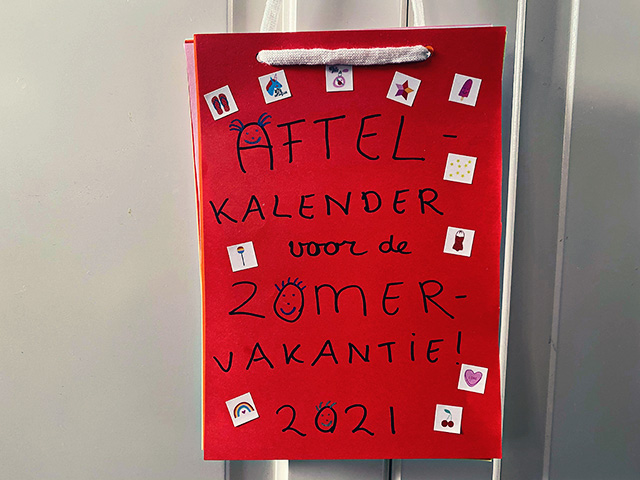 AFTEL-
KALENDER
voor de
ZOMER-
VAKANTIE!
2021